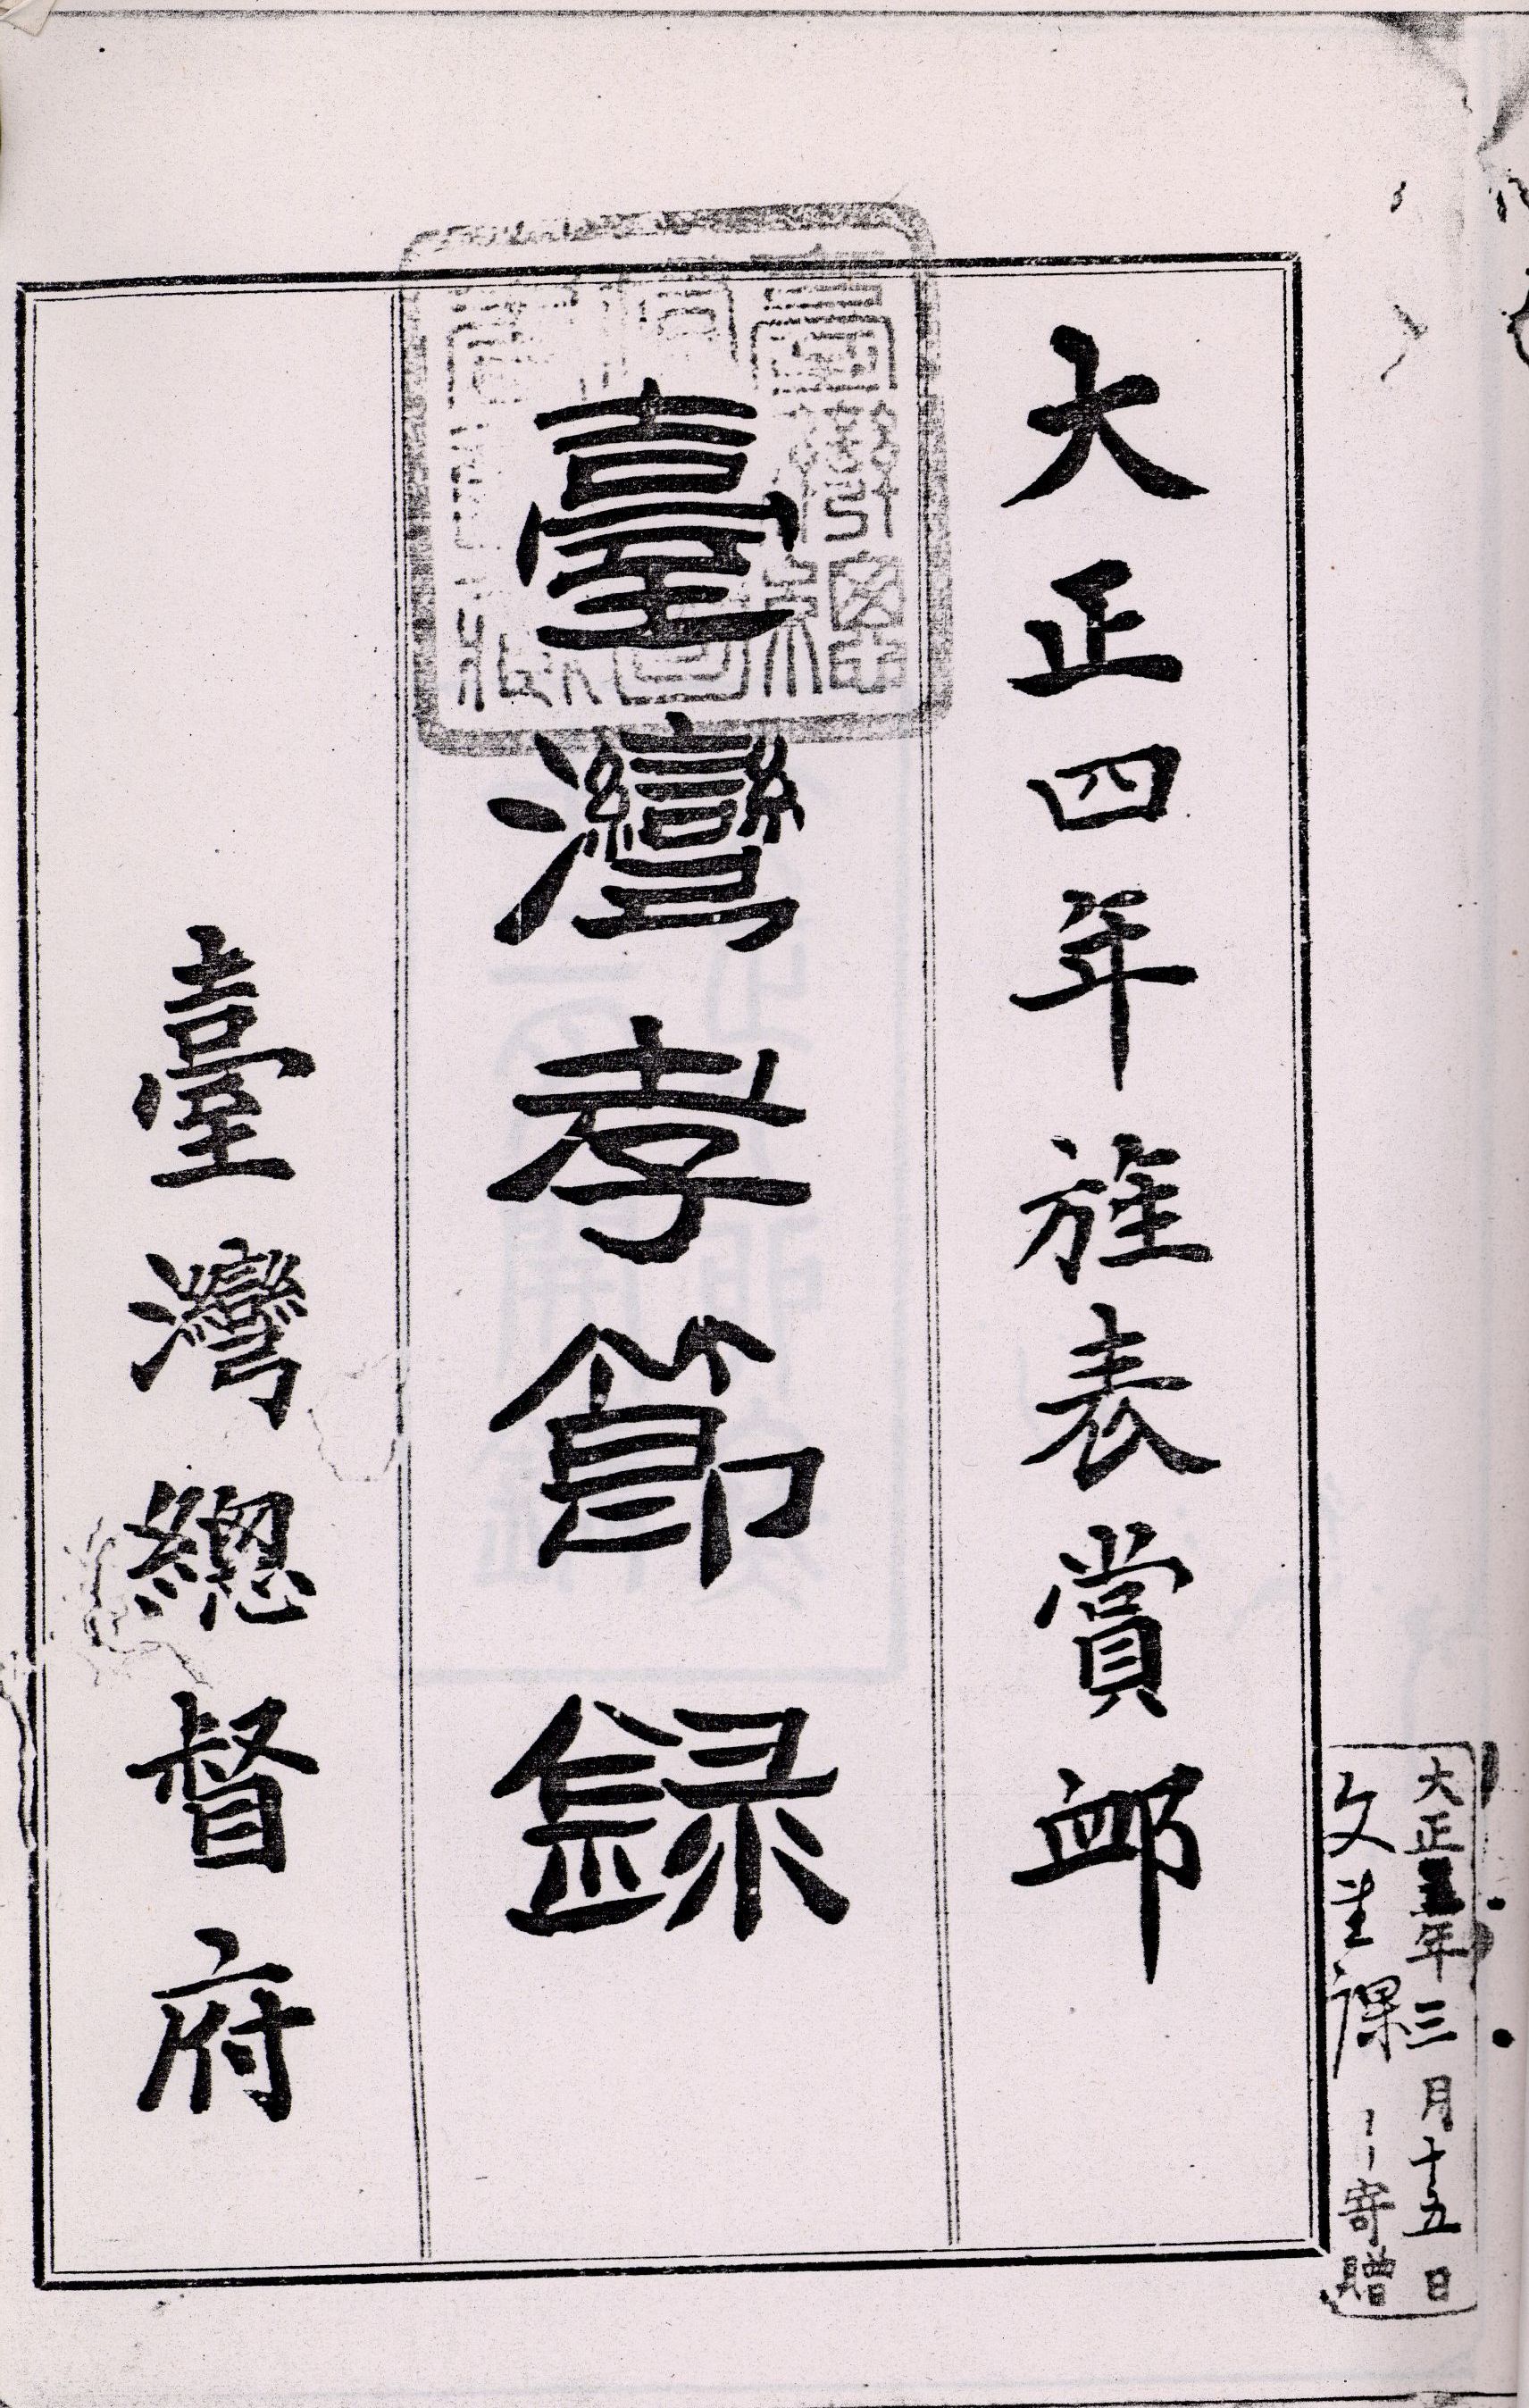 大正 年三月十五日
文 課 寄贈
大正四年旌表賞卹
臺灣孝節錄
臺灣總督府